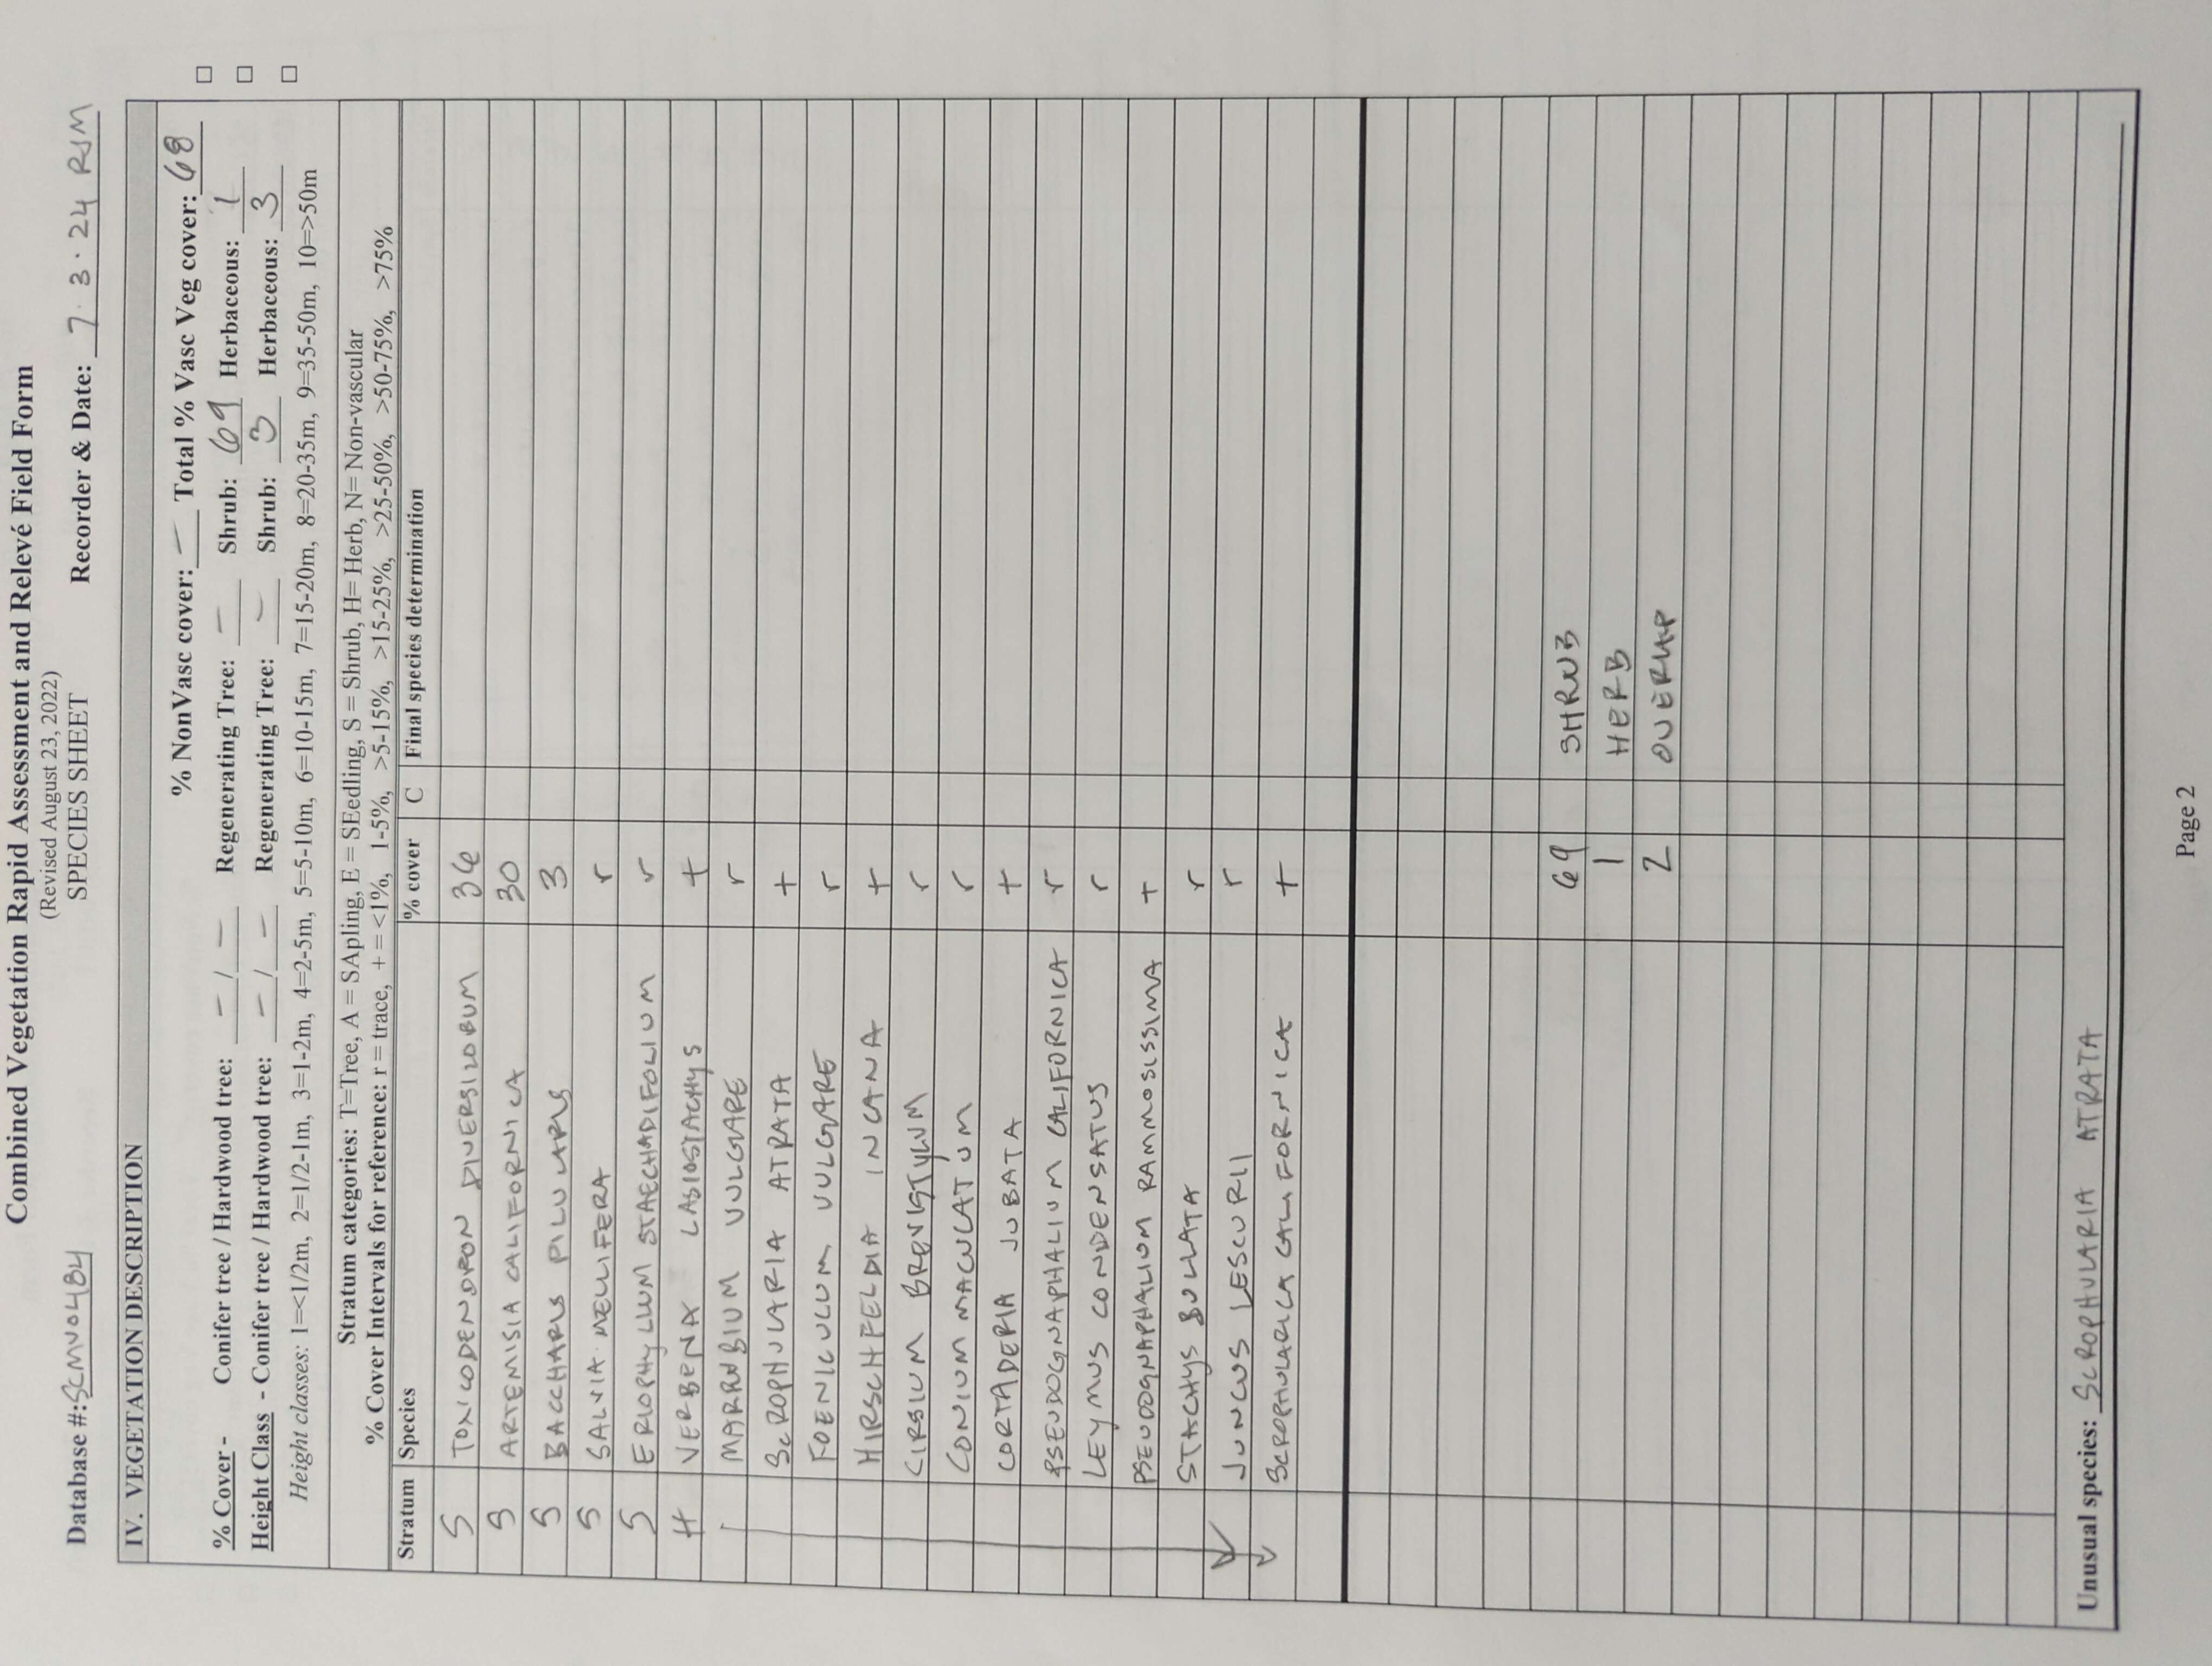 Combined Vegetation Rapid Assessment and Relevé Field Form
(Revised August 23, 2022)
SPECIES SHEET
Database #: SCMV0484 Recorder & Date: 7.3.24 RJM
IV. VEGETATION DESCRIPTION
% NonVasc cover: — Total % Vasc Veg cover: 68 □
% Cover - Conifer tree / Hardwood tree: — / — Regenerating Tree: — Shrub: 69 Herbaceous: 1 □
Height Class - Conifer tree / Hardwood tree: — / — Regenerating Tree: — Shrub: 3 Herbaceous: 3 □
Height classes: 1=<1/2m, 2=1/2-1m, 3=1-2m, 4=2-5m, 5=5-10m, 6=10-15m, 7=15-20m, 8=20-35m, 9=35-50m, 10=>50m
Stratum categories: T=Tree, A = SApling, E = SEedling, S = Shrub, H= Herb, N= Non-vascular
% Cover Intervals for reference: r = trace, + = <1%, 1-5%, >5-15%, >15-25%, >25-50%, >50-75%, >75%
Stratum Species % cover C Final species determination
S TOXICODENDRON DIVERSILOBUM 36
S ARTEMISIA CALIFORNICA 30
S BACCHARIS PILULARIS 3
S SALVIA MELLIFERA r
S ERIOPHYLLUM STAECHADIFOLIUM r
H VERBENA LASIOSTACHYS +
MARRUBIUM VULGARE r
SCROPHULARIA ATRATA +
FOENICULUM VULGARE r
HIRSCHFELDIA INCANA +
CIRSIUM BREVISTYLUM r
CONIUM MACULATUM r
CORTADERIA JUBATA +
PSEUDOGNAPHALIUM CALIFORNICA r
LEYMUS CONDENSATUS r
PSEUDOGNAPHALIUM RAMMOSISSIMA +
STACHYS BULLATA r
JUNCUS LESCURII r
SCROPHULARICA CALIFORNICA +
69 SHRUB
1 HERB
2 OVERLAP
Unusual species: SCROPHULARIA ATRATA
Page 2